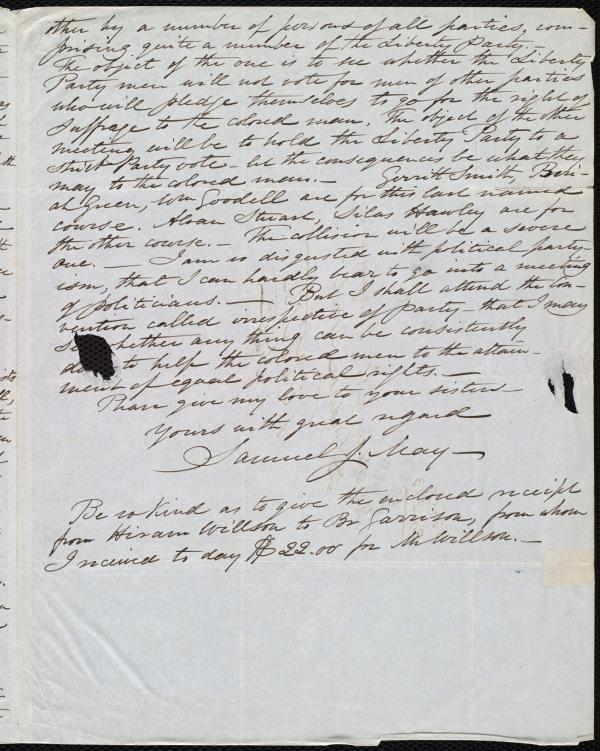 other by a number of persons of all parties, com-
prising quite a number of the Liberty Party.—
The object of the one is to see whether the Liberty
Party men will not vote for men of other parties
who will pledge themselves to go for the right of
suffrage to the colored man. The object of the other
meeting will be to hold the Liberty Party to a
strict Party vote— let the consequences be what they
may to the colored men.— Gerritt Smith, Beri-
ah Green, Wm Goodell are for this last named
course. Alvan Stuart, Silas Hawley are for
the other course.— The collision will be a severe
one.— I am so disgusted with political party-
ism, that I can hardly bear to go into a meeting
of politicians.— But I shall attend the con-
vention called irrespective of Party— that I may
see whether any thing can be consistently
done to help the colored men to the attain-
ment of equal political rights.—
Please give my love to your sisters
Yours with great regard
Samuel J. May—
Be so kind as to give the enclosed receipt
from Hiram Willson to Br Garrison, from whom
I received to day $22.00 for Mr Willson.—